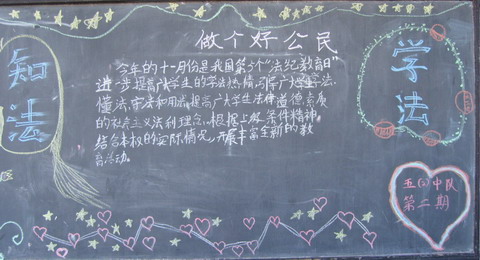 知法
做个好公民
今年的十一月份是我国第5个"法纪教育日"
进一步提高广大学生的学法热情,引导广大学生学法、
懂法、守法和用法,提高广大学生法律道德素质
的社会主义法制理念、根据上级文件精神。
结合本校的实际情况,开展丰富全新的教
育活动。
学法
五(2)中队
第二期